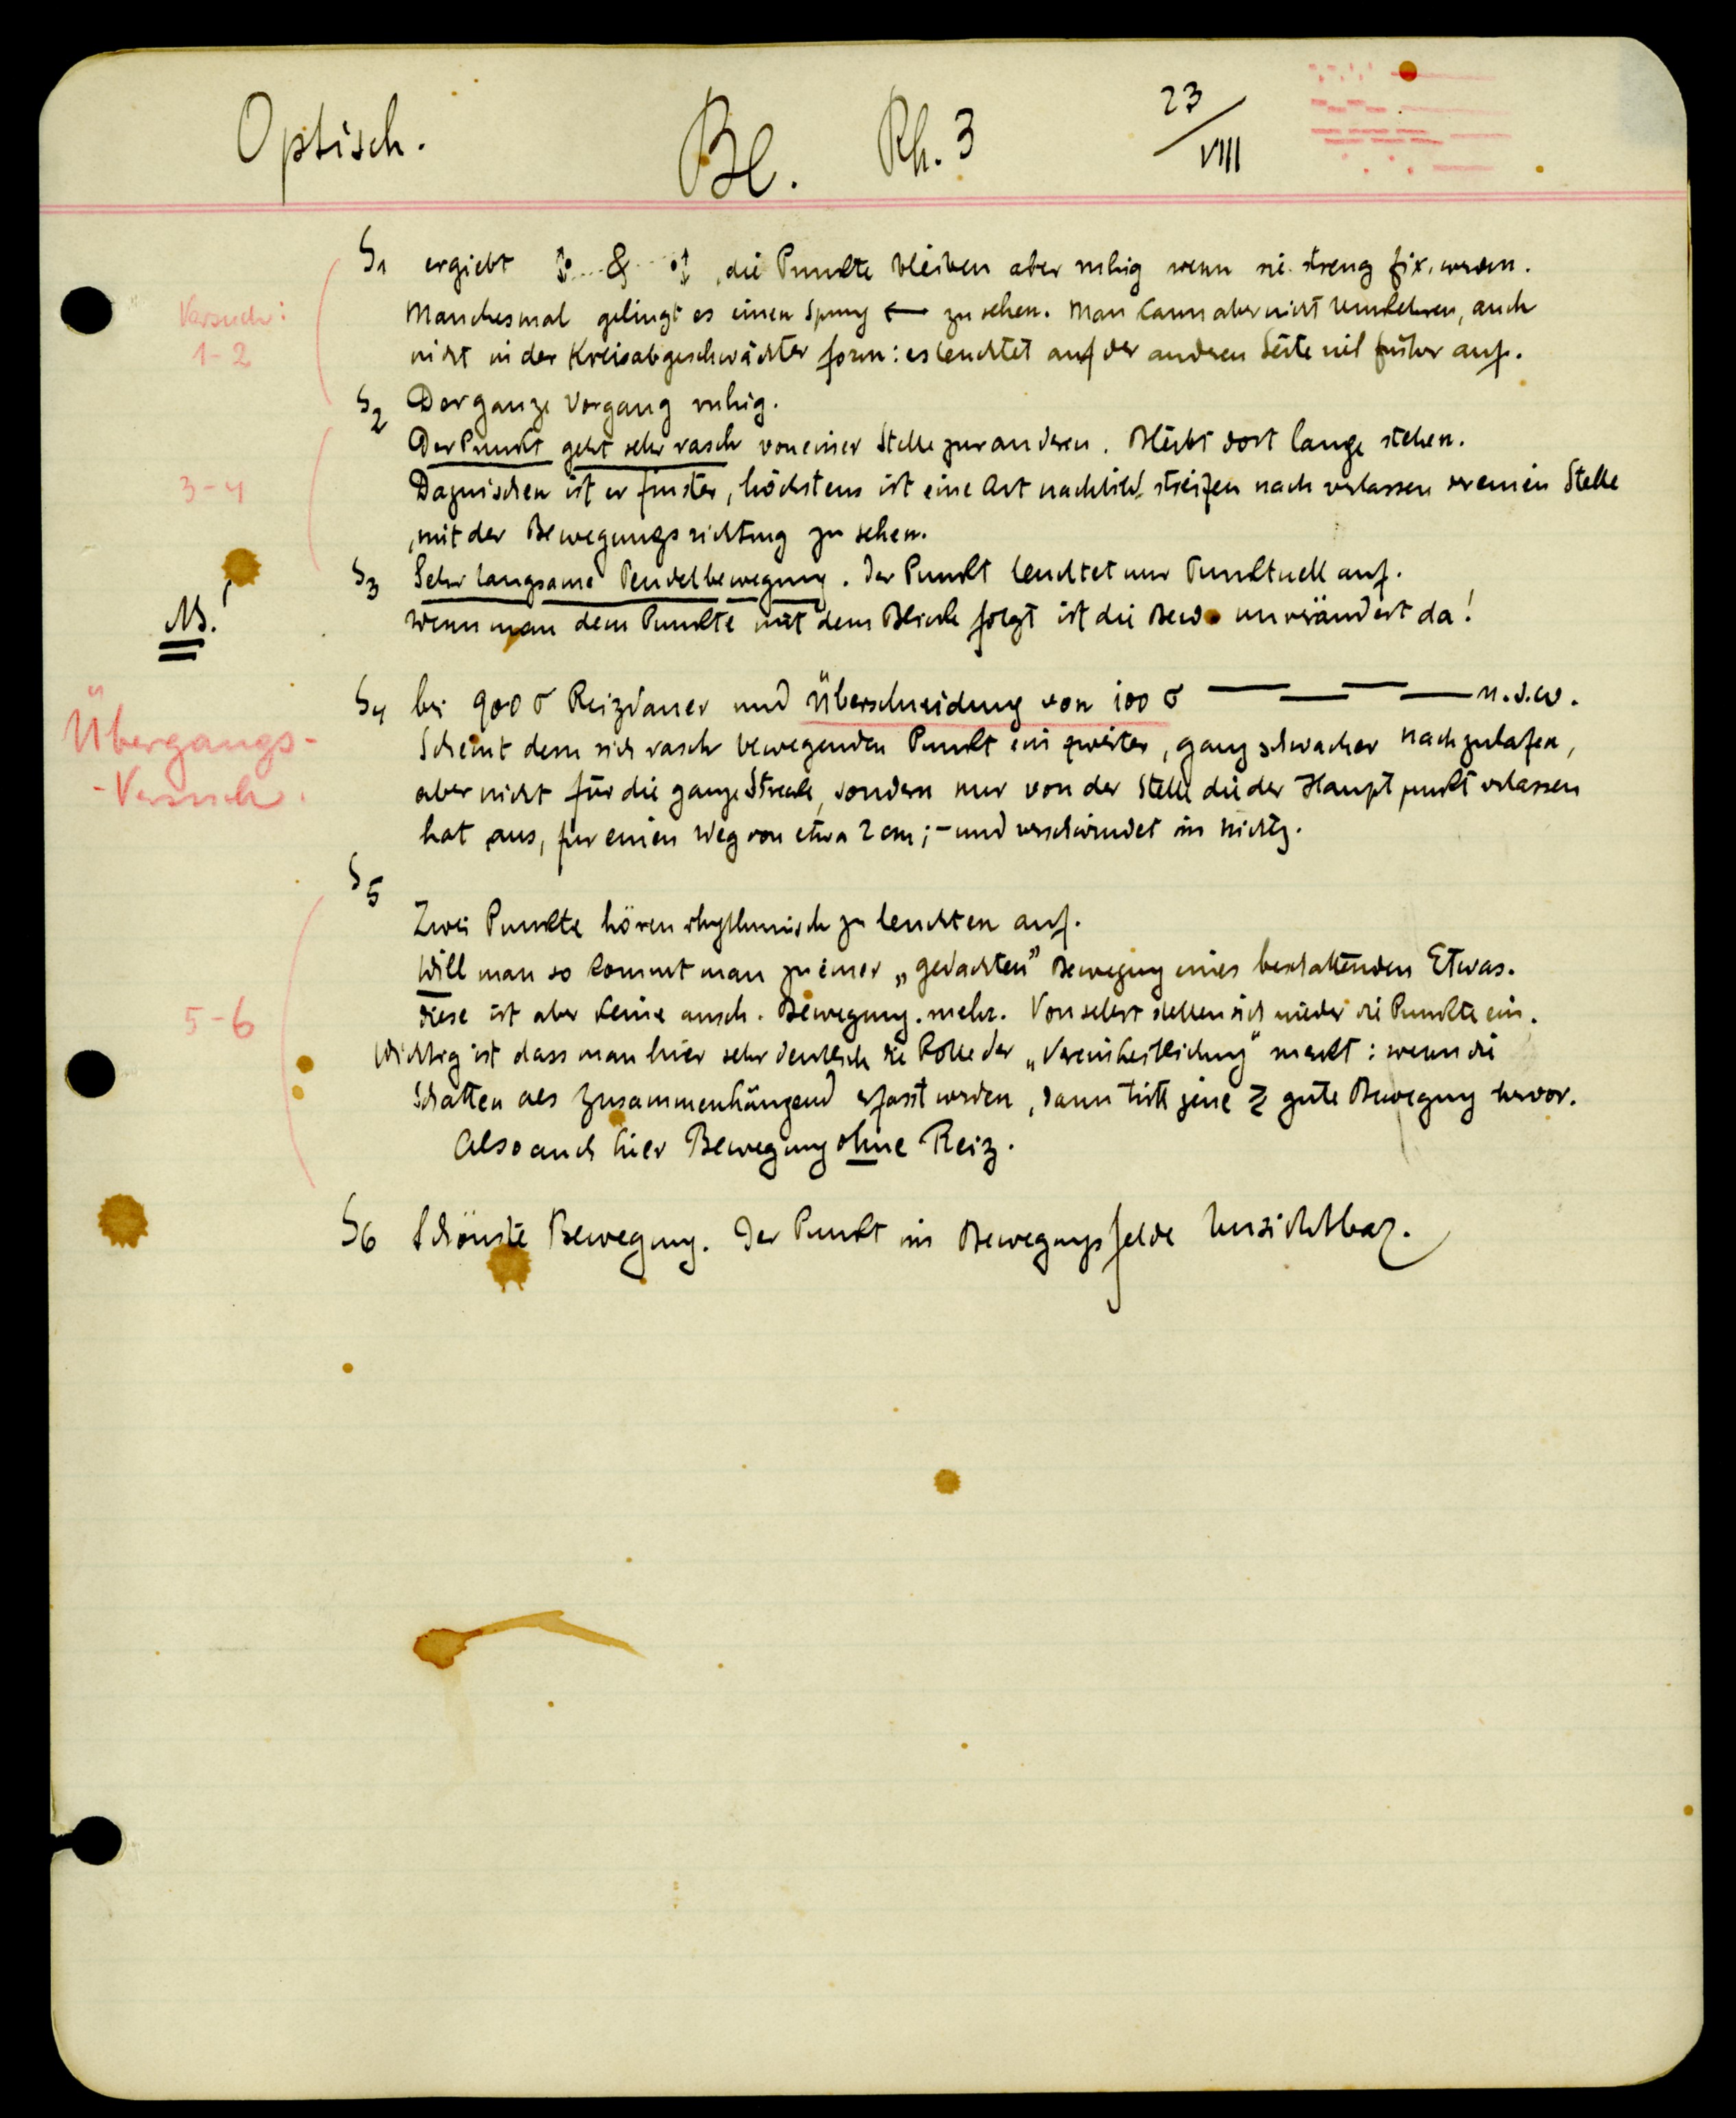 Optisch.
Bl.
Rh. 3
23/VIII
S1 ergiebt & , die Punkte bleiben aber ruhig wenn sie streng fix. werden.
Versuch:
1-2
Manchesmal gelingt es einen Sprung ← zu sehen. Man kann aber nicht umkehren, auch
nicht in der Kreisabgeschwächter form: es leuchtet auf der anderen Seite viel früher auf.
S2 Der ganze Vorgang ruhig.
Der Punkt geht sehr rasch von einer Stelle zur anderen. Bleibt dort lange stehen.
3-4
Dazwischen ist er finster, höchstens ist eine Art nachbild streifen nach verlassen der einen Stelle
, mit der Bewegungsrichtung zu sehen.
S3 Sehr langsame Pendelbewegung. Der Punkt leuchtet nur Punktuell auf.
NB.
Wenn man dem Punkte mit dem Blicke folgt ist die Bew. unverändert da!
S4 bei 900 σ Reizdauer und Überschneidung von 100 σ — — — — u.s.w.
Übergangs-
-Versuch.
Scheint dem sich rasch bewegenden Punkt ein zweiter, ganz schwacher nachzulafen,
aber nicht für die ganze Strecke, sondern nur von der Stelle die der Hauptpunkt verlassen
hat aus, für einen Weg von etwa 2 cm; - und verschwindet im Nichts.
S5
Zwei Punkte hören rhythmisch zu leuchten auf.
Will man so kommt man zu einer „gedachten” Bewegung eines beschattenden Etwas.
5-6
diese ist aber keine ansch. Bewegung. mehr. Von selbst stellen sich wieder die Punkte ein.
Wichtig ist dass man hier sehr deutlich die Rolle der merkt: wenn die
Schatten als Zusammenhängend erfasst werden, dann tritt jene gute Bewegung hervor.
Also auch hier Bewegung ohne Reiz.
S6 Schönste Bewegung. Der Punkt im Bewegungsfelde Unsichtbar.